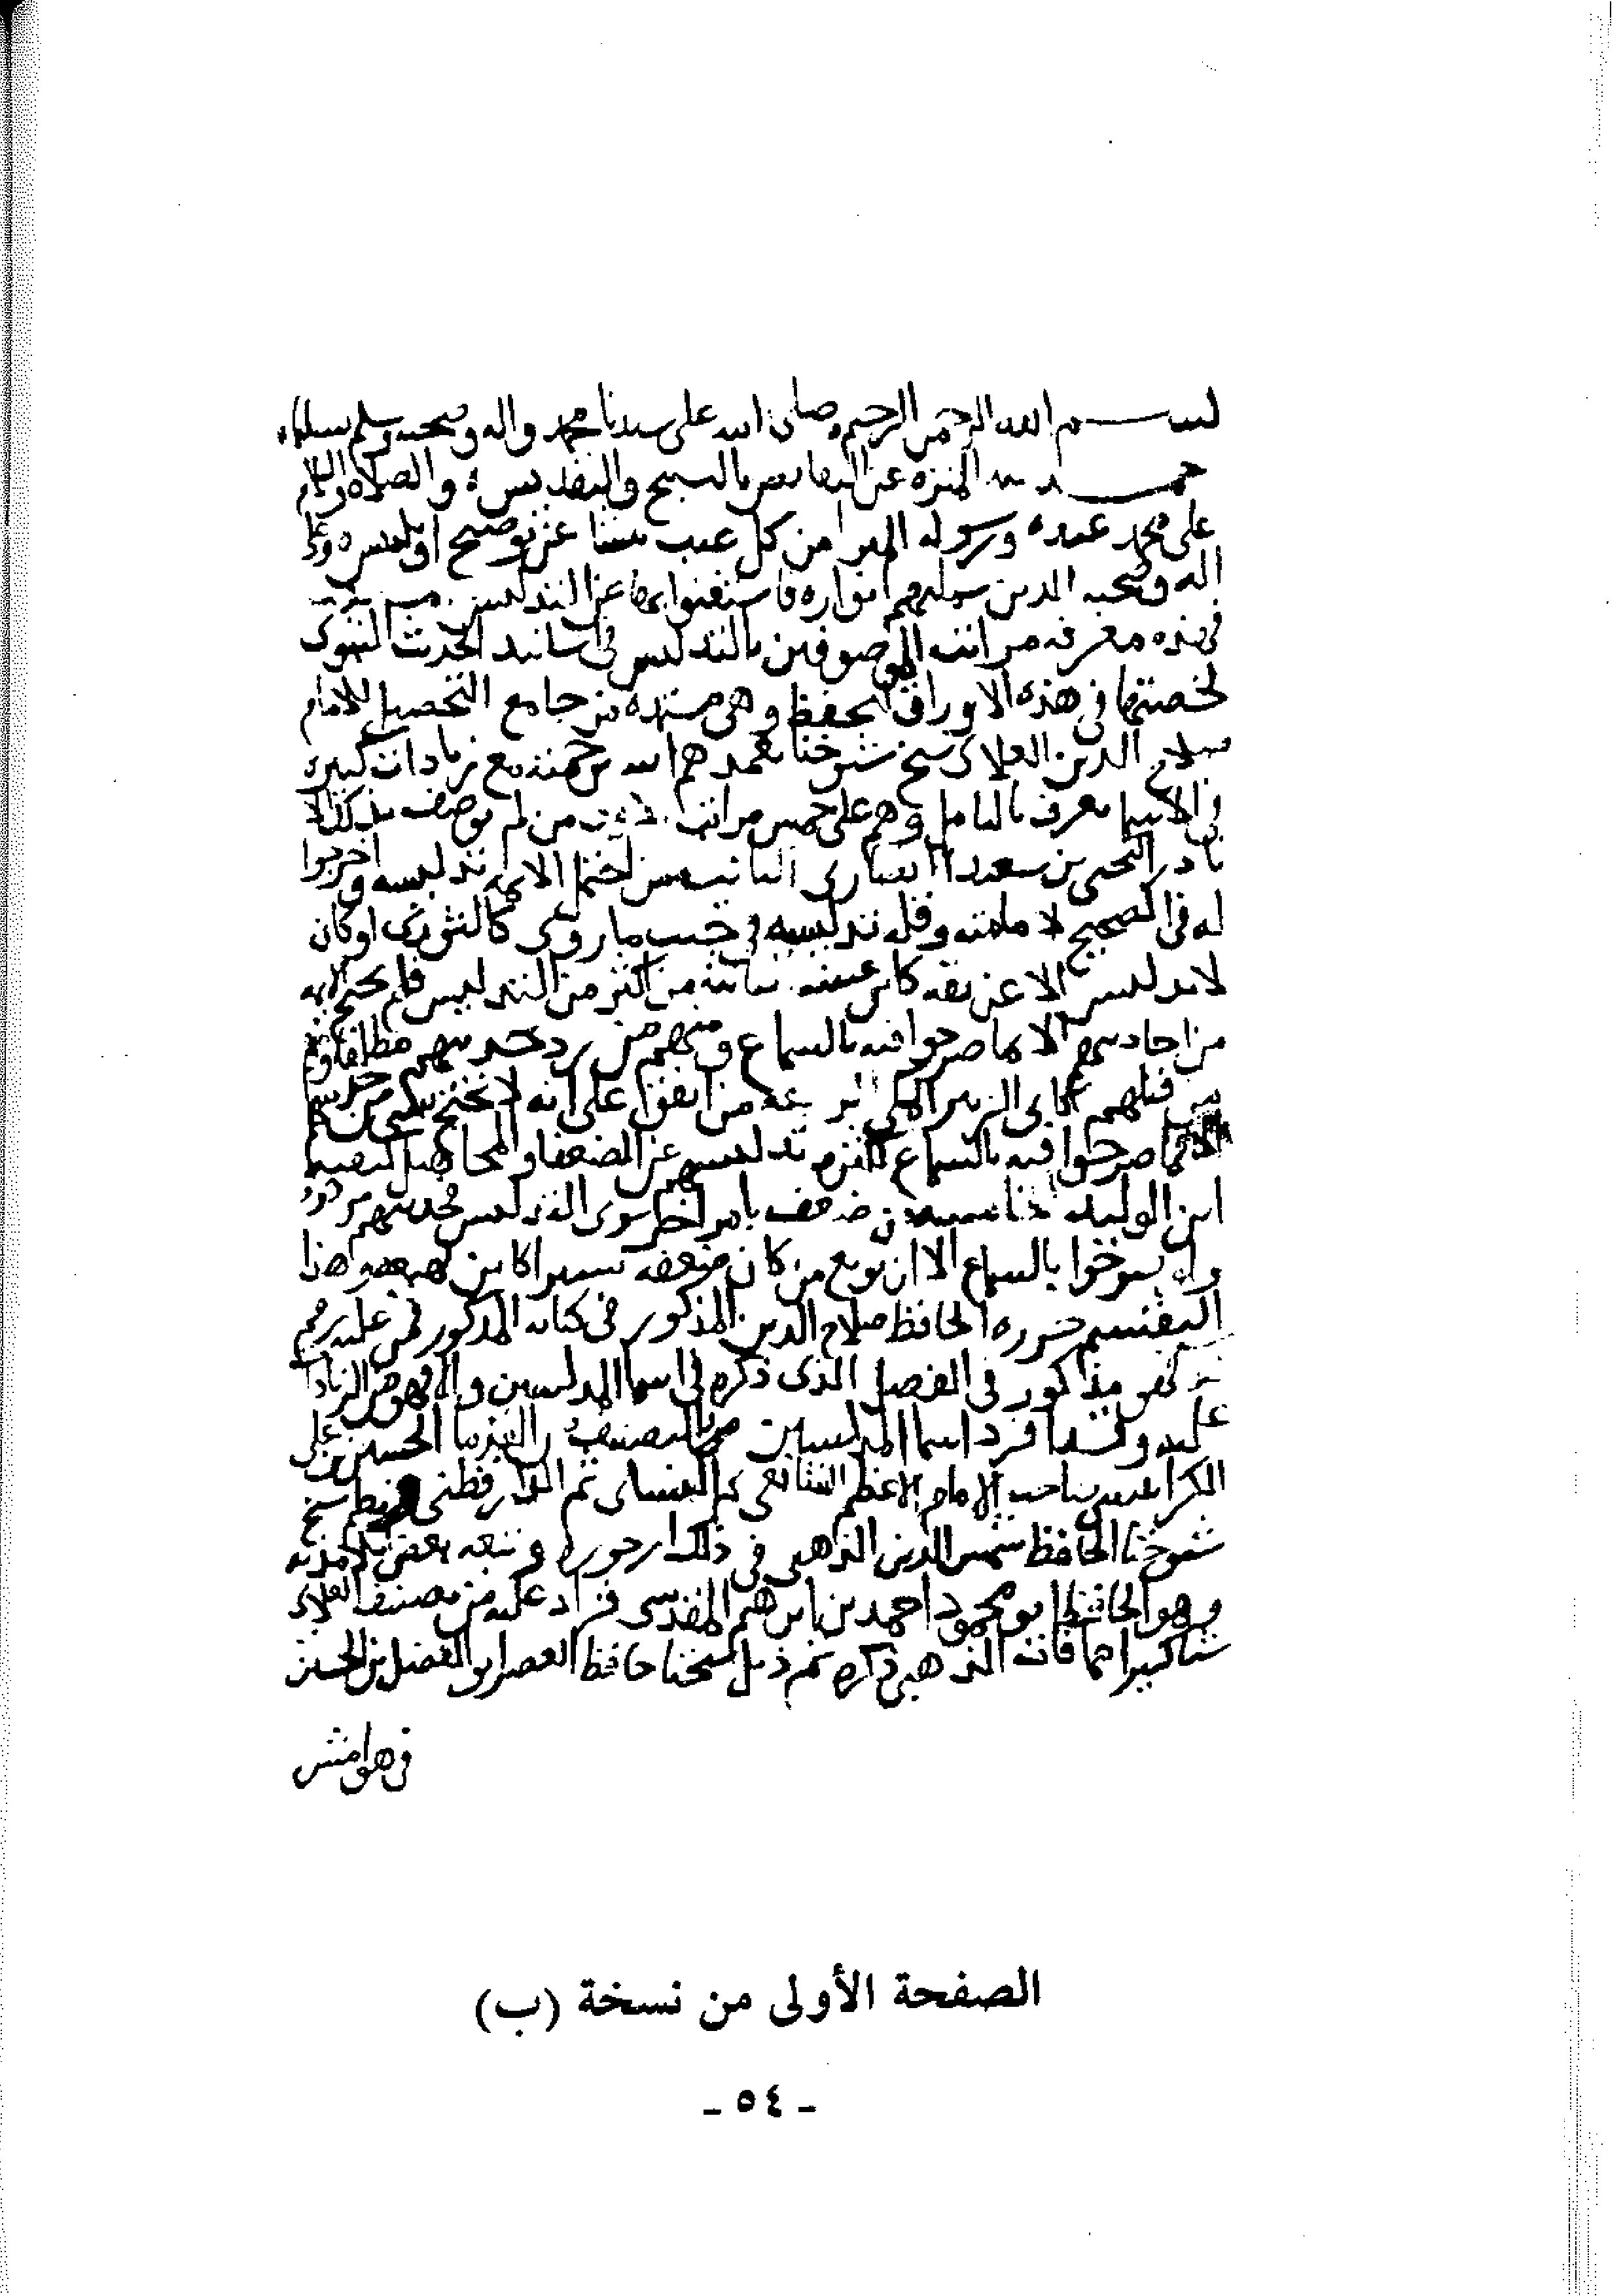 بسم الله الرحمن الرحيم وصلى الله على سيدنا محمد واله وصحبه وسلم تسليما
المنزه عن النقايص بالتسبيح والتقديس والصلاة والسلام
على محمد عبده ورسوله المبرا من كل عيب عن توضيح او تلبيس وعلى
اله وصحبه الدين انواره فاستغنوا بها عن التدليس
فهذه معرفة مراتب الموصوفين بالتدليس في اسانيد الحديث النبوي
لخصتها في هذه الاوراق لتحفظ وهي مستمدة من جامع التحصيل للامام
صلاح الدين العلاى شيخ شيوخنا تغمدهم الله برحمته مع زيادات كثيرة
في الاسما تعرف بالتامل وهم على خمس مراتب من لم يوصف بذلك الا
نادرا كيحيى بن سعيد الانصاري الثانية من احتمل الائمة تدليسه واخرجوا
له في الصحيح لامامته وقلة تدليسه في جنب ما روى كالثوري او كان
لا يدلس الا عن ثقة كابن عيينة الثالثة من اكثر من التدليس فلم يحتج الائمة
من احاديثهم الا بما صرحوا فيه بالسماع ومنهم من رد حديثهم مطلقا ومنهم
من قبلهم كابي الزبير المكي الرابعة من اتفق على انه لا يحتج بشي من حديثهم
الا بما صرحوا فيه بالسماع لكثرة تدليسهم عن الضعفا والمجاهيل كبقية
ابن الوليد الخامسة من ضعف بامر اخر سوى التدليس فحديثهم مردود
ولو صرحوا بالسماع الا ان يوثق من كان ضعفه يسيرا كابن لهيعة وهذا
التقسيم حرره الحافظ صلاح الدين المذكور في كتابه المذكور فمن عليه رقم
فهو مذكور في الفصل الذى ذكره في اسما المدلسين والا فهو من الزيادات
عليه وقد افرد اسما المدلسين بالتصنيف من القدما الحسين بن علي
الكرابيسي صاحب الامام الاعظم الشافعي ثم النساى ثم الدارقطني ونظم شيخ
شيوخنا الحافظ شمس الدين الذهبي في ذلك ارجوزة وتبعه بعض تلامذته
وهو الحافظ ابو محمود احمد بن ابرهيم المقدسي فزاد عليه من تصنيف العلاى
شيا كثيرا مما فات الذهبي ذكره ثم ذيل شيخنا حافظ العصر ابو الفضل بن الحسين
في هوامش
الصفحة الأولى من نسخة (ب)
- ٥٤ -